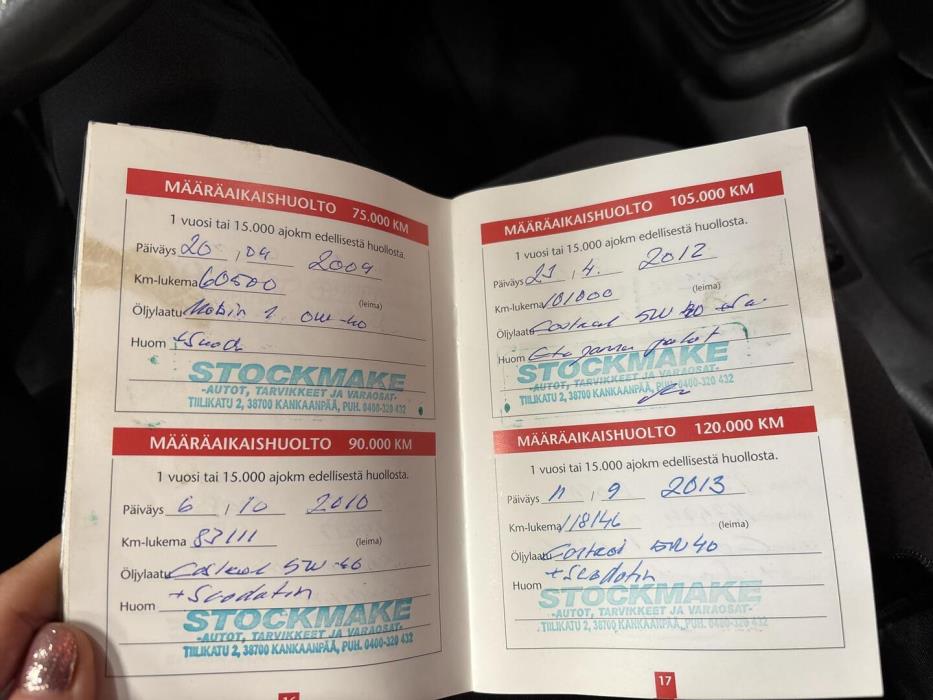 MÄÄRÄAIKAISHUOLTO 75.000 KM
1 vuosi tai 15.000 ajokm edellisestä huollosta.
Päiväys 20 , 04 2009
Km-lukema 60500
(leima)
Öljylaatu Mobin 1 0W-40
Huom
STOCKMAKE
-AUTOT, TARVIKKEET JA VARAOSAT-
TIILIKATU 2, 38700 KANKAANPÄÄ, PUH. 0400-320 432
MÄÄRÄAIKAISHUOLTO 90.000 KM
1 vuosi tai 15.000 ajokm edellisestä huollosta.
Päiväys 6 , 10 2010
Km-lukema 83111
(leima)
Öljylaatu Castrol 5W-40
Huom + Scodatin
STOCKMAKE
-AUTOT, TARVIKKEET JA VARAOSAT-
TIILIKATU 2, 38700 KANKAANPÄÄ, PUH. 0400-320 432
16
MÄÄRÄAIKAISHUOLTO 105.000 KM
1 vuosi tai 15.000 ajokm edellisestä huollosta.
Päiväys 21 , 4. 2012
Km-lukema 101000
(leima)
Öljylaatu Castrol 5W
Huom Eta palat
STOCKMAKE
-AUTOT, TARVIKKEET JA VARAOSAT-
TIILIKATU 2, 38700 KANKAANPÄÄ, PUH. 0400-320 432
MÄÄRÄAIKAISHUOLTO 120.000 KM
1 vuosi tai 15.000 ajokm edellisestä huollosta.
Päiväys 11 , 9 2013
Km-lukema 118146
(leima)
Öljylaatu Castrol 5W40
Huom + Scodatin
STOCKMAKE
-AUTOT, TARVIKKEET JA VARAOSAT-
TIILIKATU 2, 38700 KANKAANPÄÄ, PUH. 0400-320 432
17